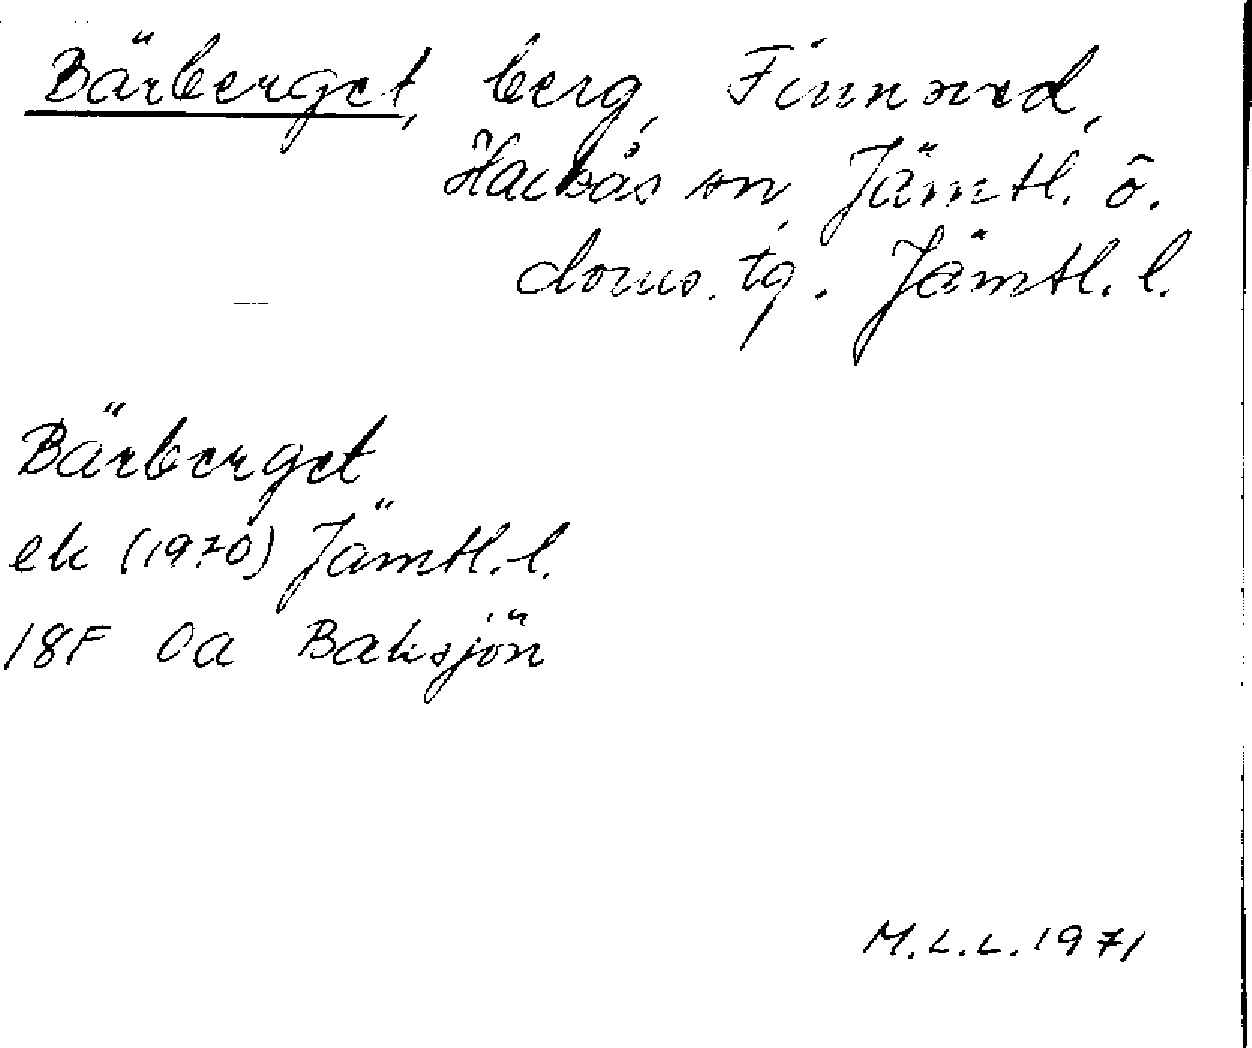 Bärberget, berg, Finnsved,
Hackås sn, Jämtl. ö.
doms. tg. Jämtl. l.
Bärberget
ek (1970) Jämtl. l.
18F 0a Baksjön
M.L.L. 1971